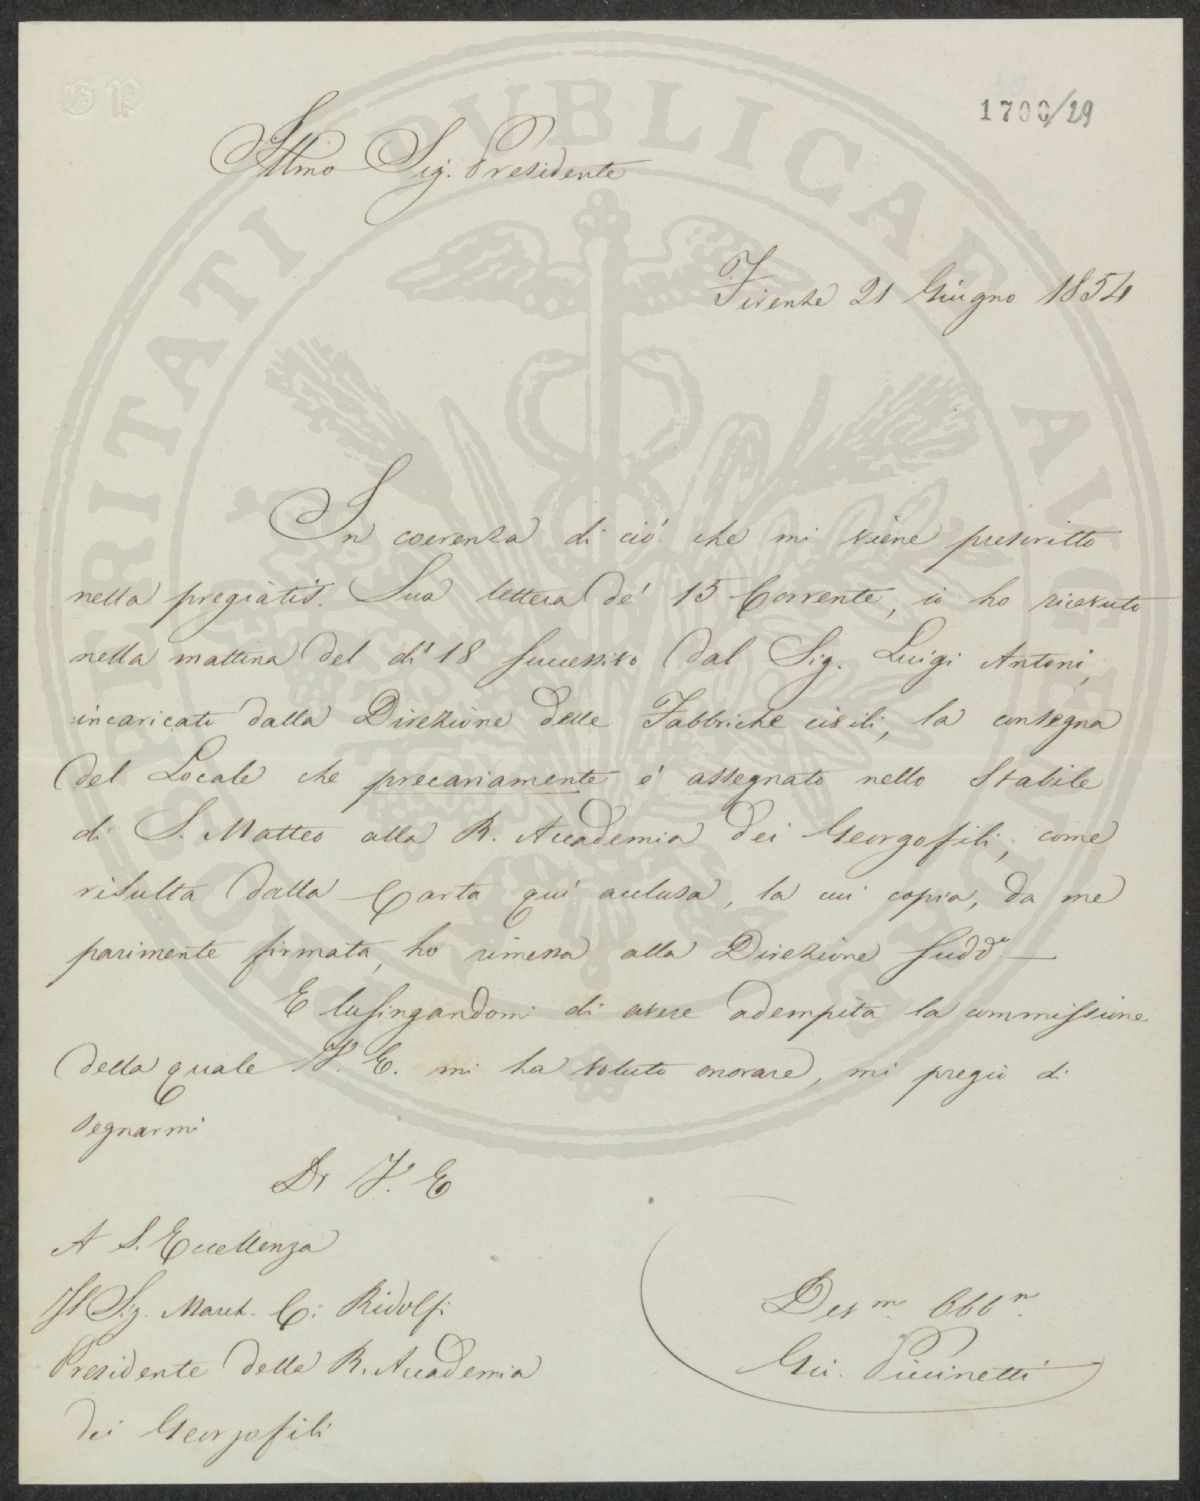 GP
1700/29
Illmo Sig. Presidente
Firenze 21 Giugno 1854
In coerenza di ciò che mi viene prescritto
nella pregiatis. Sua lettera de' 15 Corrente, io ho ricevuto
nella mattina del dì 18 successivo dal Sig. Luigi Antoni,
incaricato dalla Direzione delle Fabbriche civili, la consegna
del Locale che precariamente è assegnato nello Stabile
di S. Matteo alla R. Accademia dei Georgofili, come
risulta dalla Carta quì acclusa, la cui copia, da me
parimente firmata, ho rimessa alla Direzione sudda —
E lusingandomi di avere adempita la commissione
della quale V. E. mi ha voluto onorare, mi pregio di
segnarmi
Di V. E
A S. Eccellenza
Il Sig. March. C. Ridolfi
Presidente della R. Accademia
dei Georgofili
Devmo. Obbmo.
Gii. Piccinetti
PROSPERITATI PUBLICAE AUGENDAE